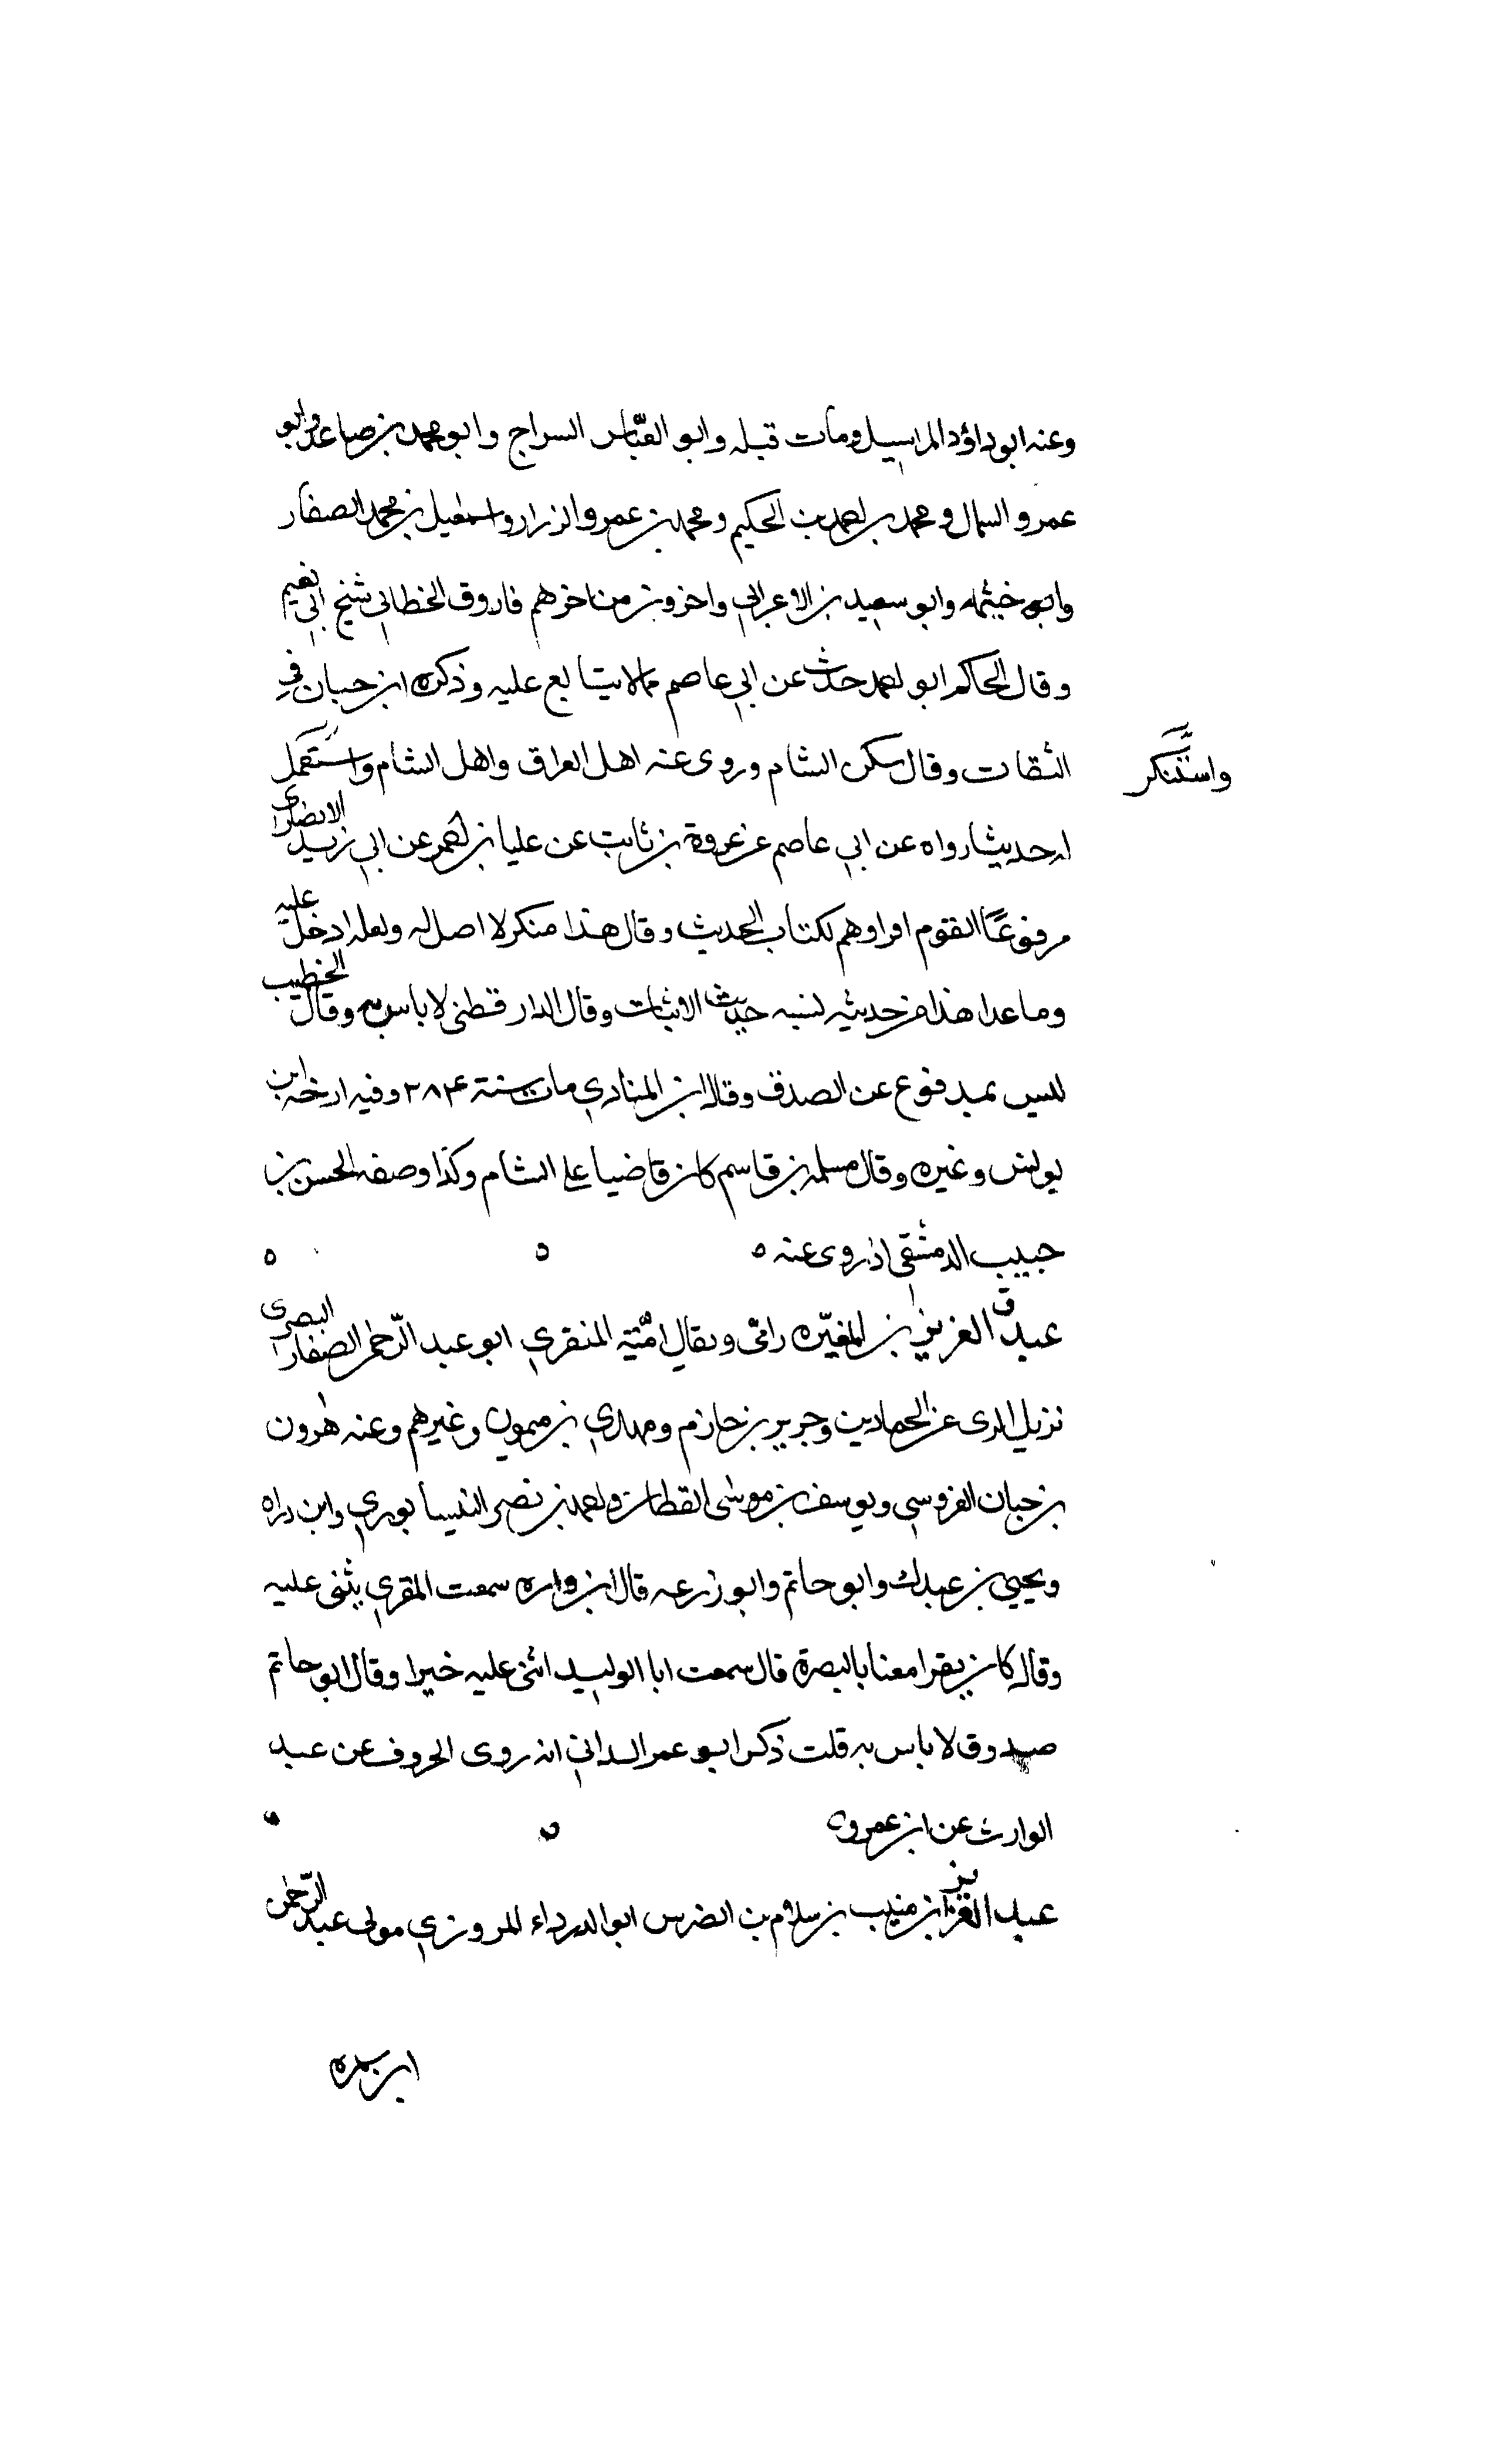 وعنه ابو داؤد المراسيل ومات قبله وابو العبّاس السراج وابو محمد بن صاعد وابو
عمرو السمال ومحمد بن احمد بن الحكيم ومحمد بن عمرو الرزاز واسمعيل بن محمد الصفار
وابو خيثمه وابو سعيد بن الاعرابي واخرون من اخرهم فاروق الخطابي شيخ ابي نعيم
وقال الحاكم ابو احمد حدث عن ابي عاصم مالا يتابع عليه وذكره ابن حبان في
الثقات وقال سكن الشام وروى عنه اهل العراق واهل الشام
واستنكر
له حديثا رواه عن ابي عاصم عن عروة بن ثابت عن عليا بن احمر عن ابي زيد الانصارى
مرفوعًا القوم اقراوهم لكتاب الحديث وقال هذا منكر لا اصل له ولعله ادخل عليه
وما عدا هذا من حديثه لشبه حديث الاثبات وقال الدارقطنى لا باس به وقال الخطيب
ليس بمدفوع عن الصدق وقال ابن المنادي مات سنة ٢٨۴ وفيه ارخه ابن
يونس وغيره وقال مسلمه بن قاسم كان قاضيا على الشام وكذا وصفه الحسن بن
حبيب الدمشقي اذ روى عنه ٥ ٥ ٥
ق
عبد العزيز بن المغيّره ويقال اميّة المنقري ابو عبد الرّحمن الصفار البصرى
نزيل الرى عن الحمادين وجرير بن حازم ومهدي بن ميمون وغيرهم وعنه هرون
بن حبان القزوينى ويوسف بن موسى القطان واحمد بن نصر النيسابوري وابن داره
ويحيى بن عبدك وابو حاتم وابو زرعه قال ابن واره سمعت المقري يثنى عليه
وقال كان يقرا معنا بالبصرة قال سمعت ابا الوليد اثنى عليه خيرا وقال ابو حاتم
صدوق لا باس به قلت ذكر ابو عمر الداني انه روى الحروف عن عبد
الوارث عن ابن عمرو ٥ ٥
عبد العزيز بن منيب بن سلام بن الضرس ابو الدرداء المروزي مولى عبد الرّحمن
ابن سمره